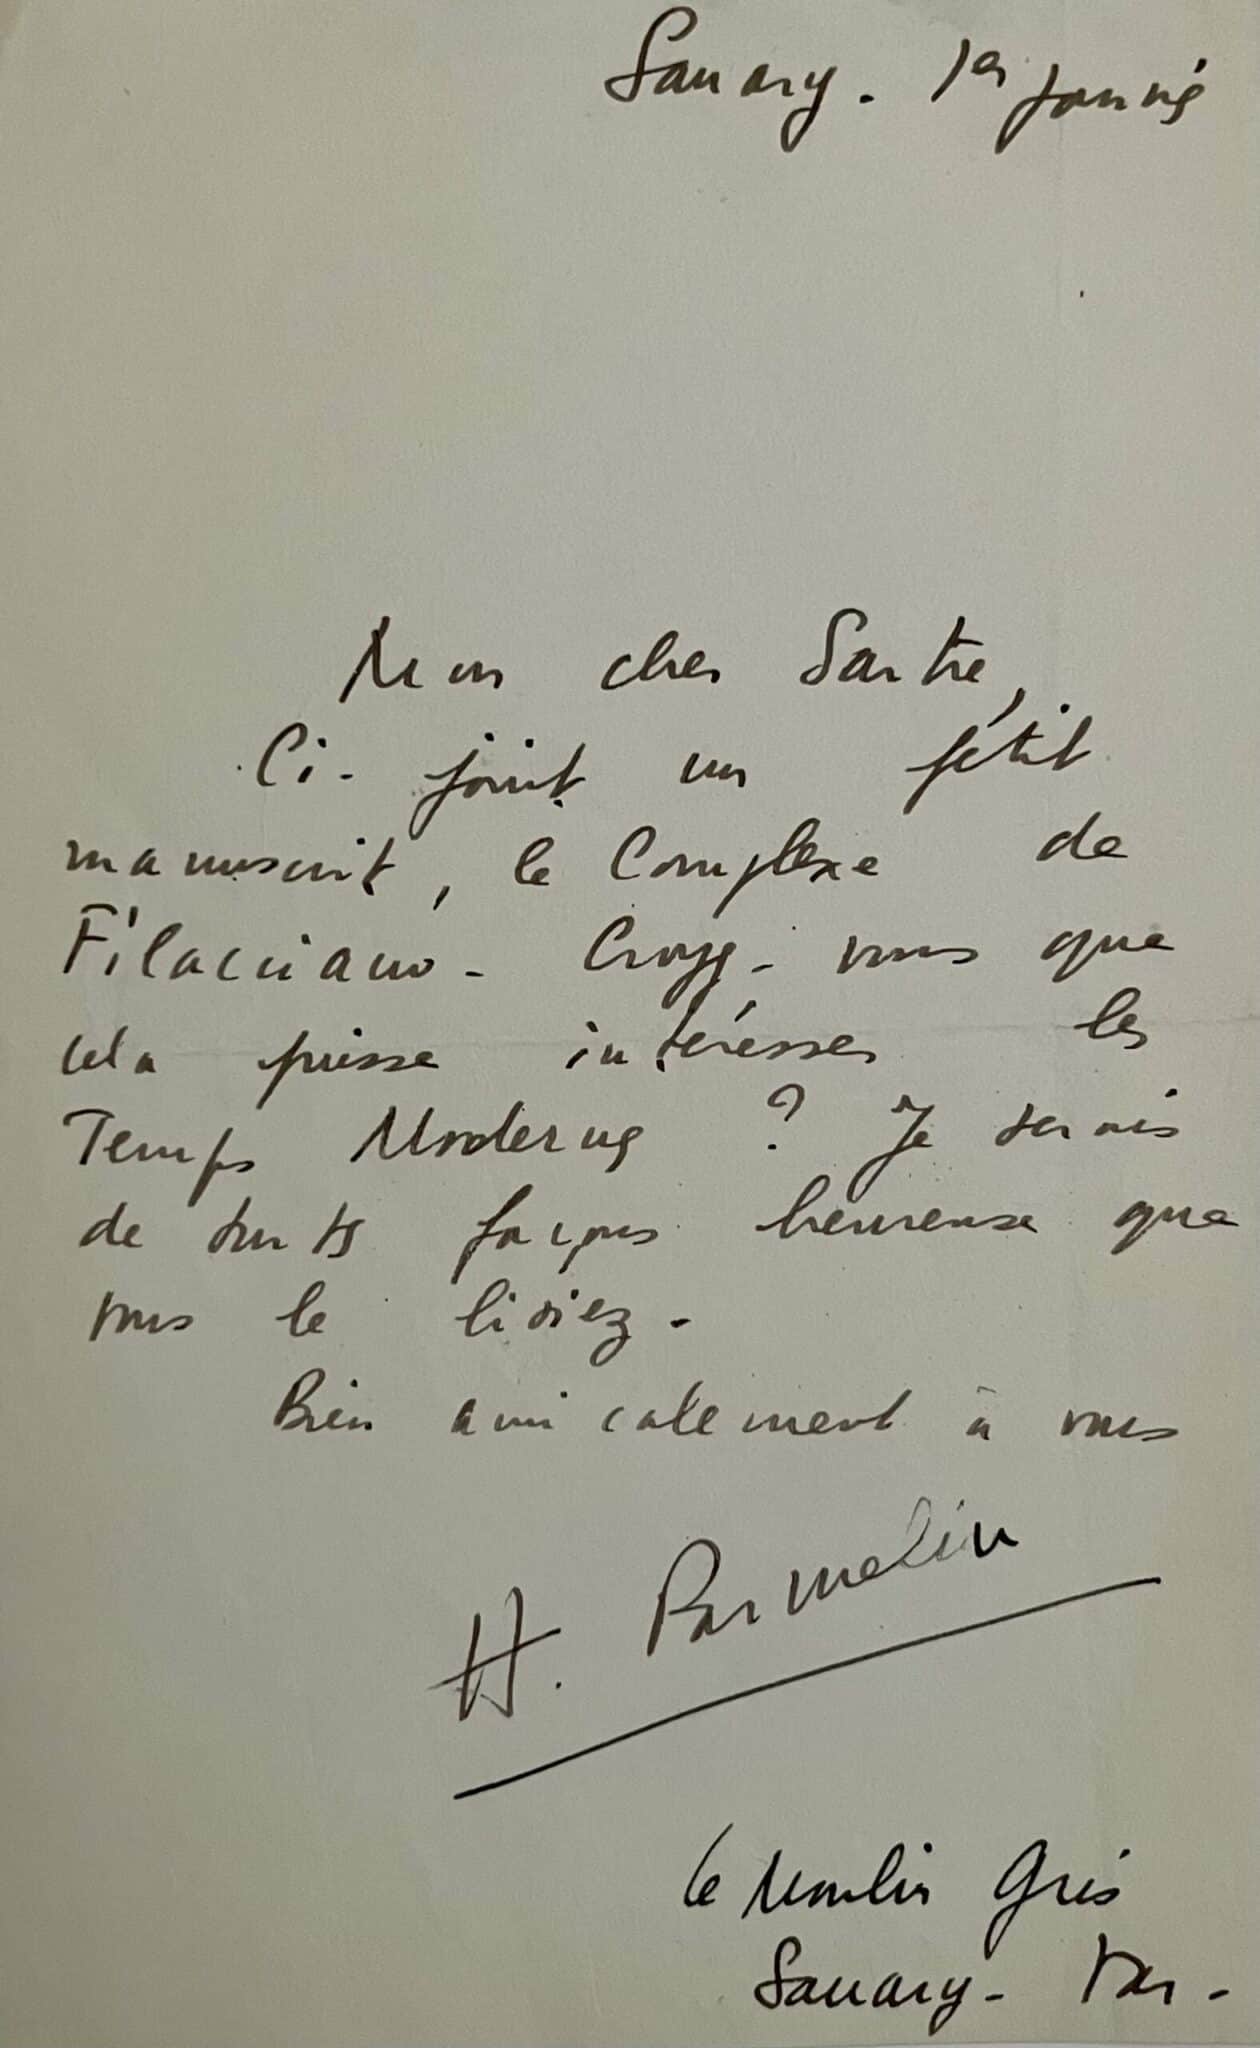 Sanary. 1er janvier
Mon cher Sartre,
Ci-joint un petit
manuscrit, le Complexe de
Filacciano. Croyez-vous que
cela puisse intéresser les
Temps Modernes ? Je serais
de toutes façons heureuse que
vous le lisiez.
Bien amicalement à vous
H. Parmelin
Le Moulin Gris
Sanary - Var.